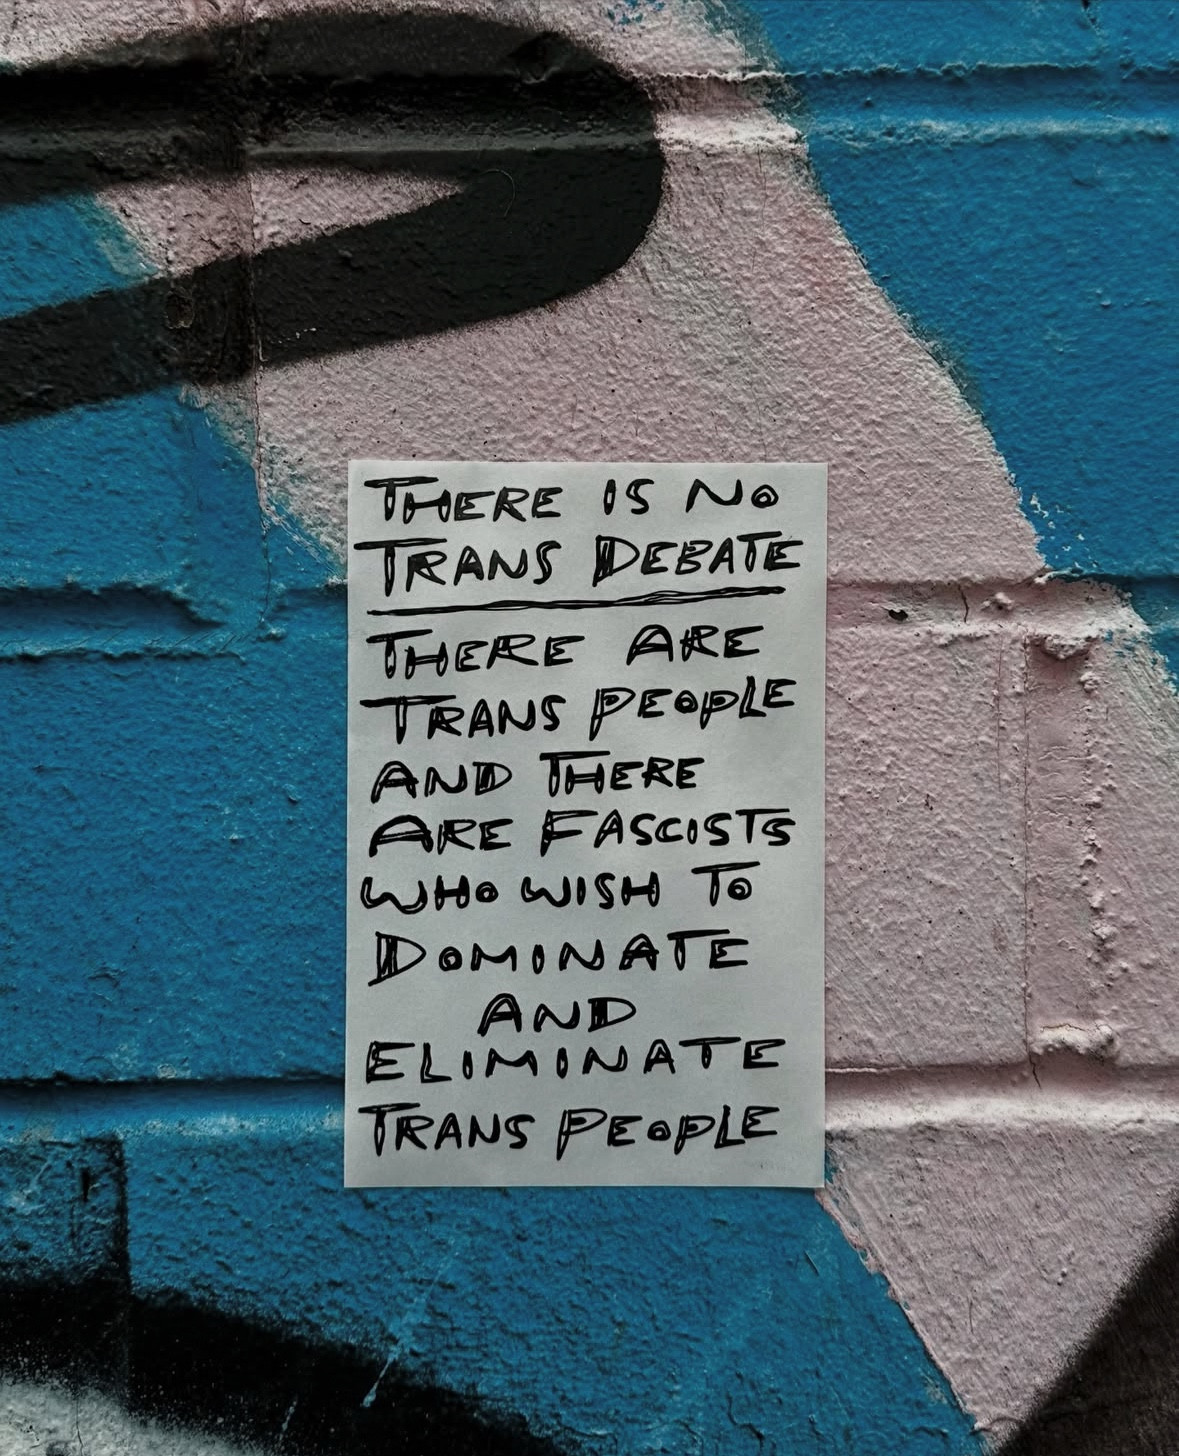 THERE IS NO
TRANS DEBATE
THERE ARE
TRANS PEOPLE
AND THERE
ARE FASCISTS
WHO WISH TO
DOMINATE
AND
ELIMINATE
TRANS PEOPLE